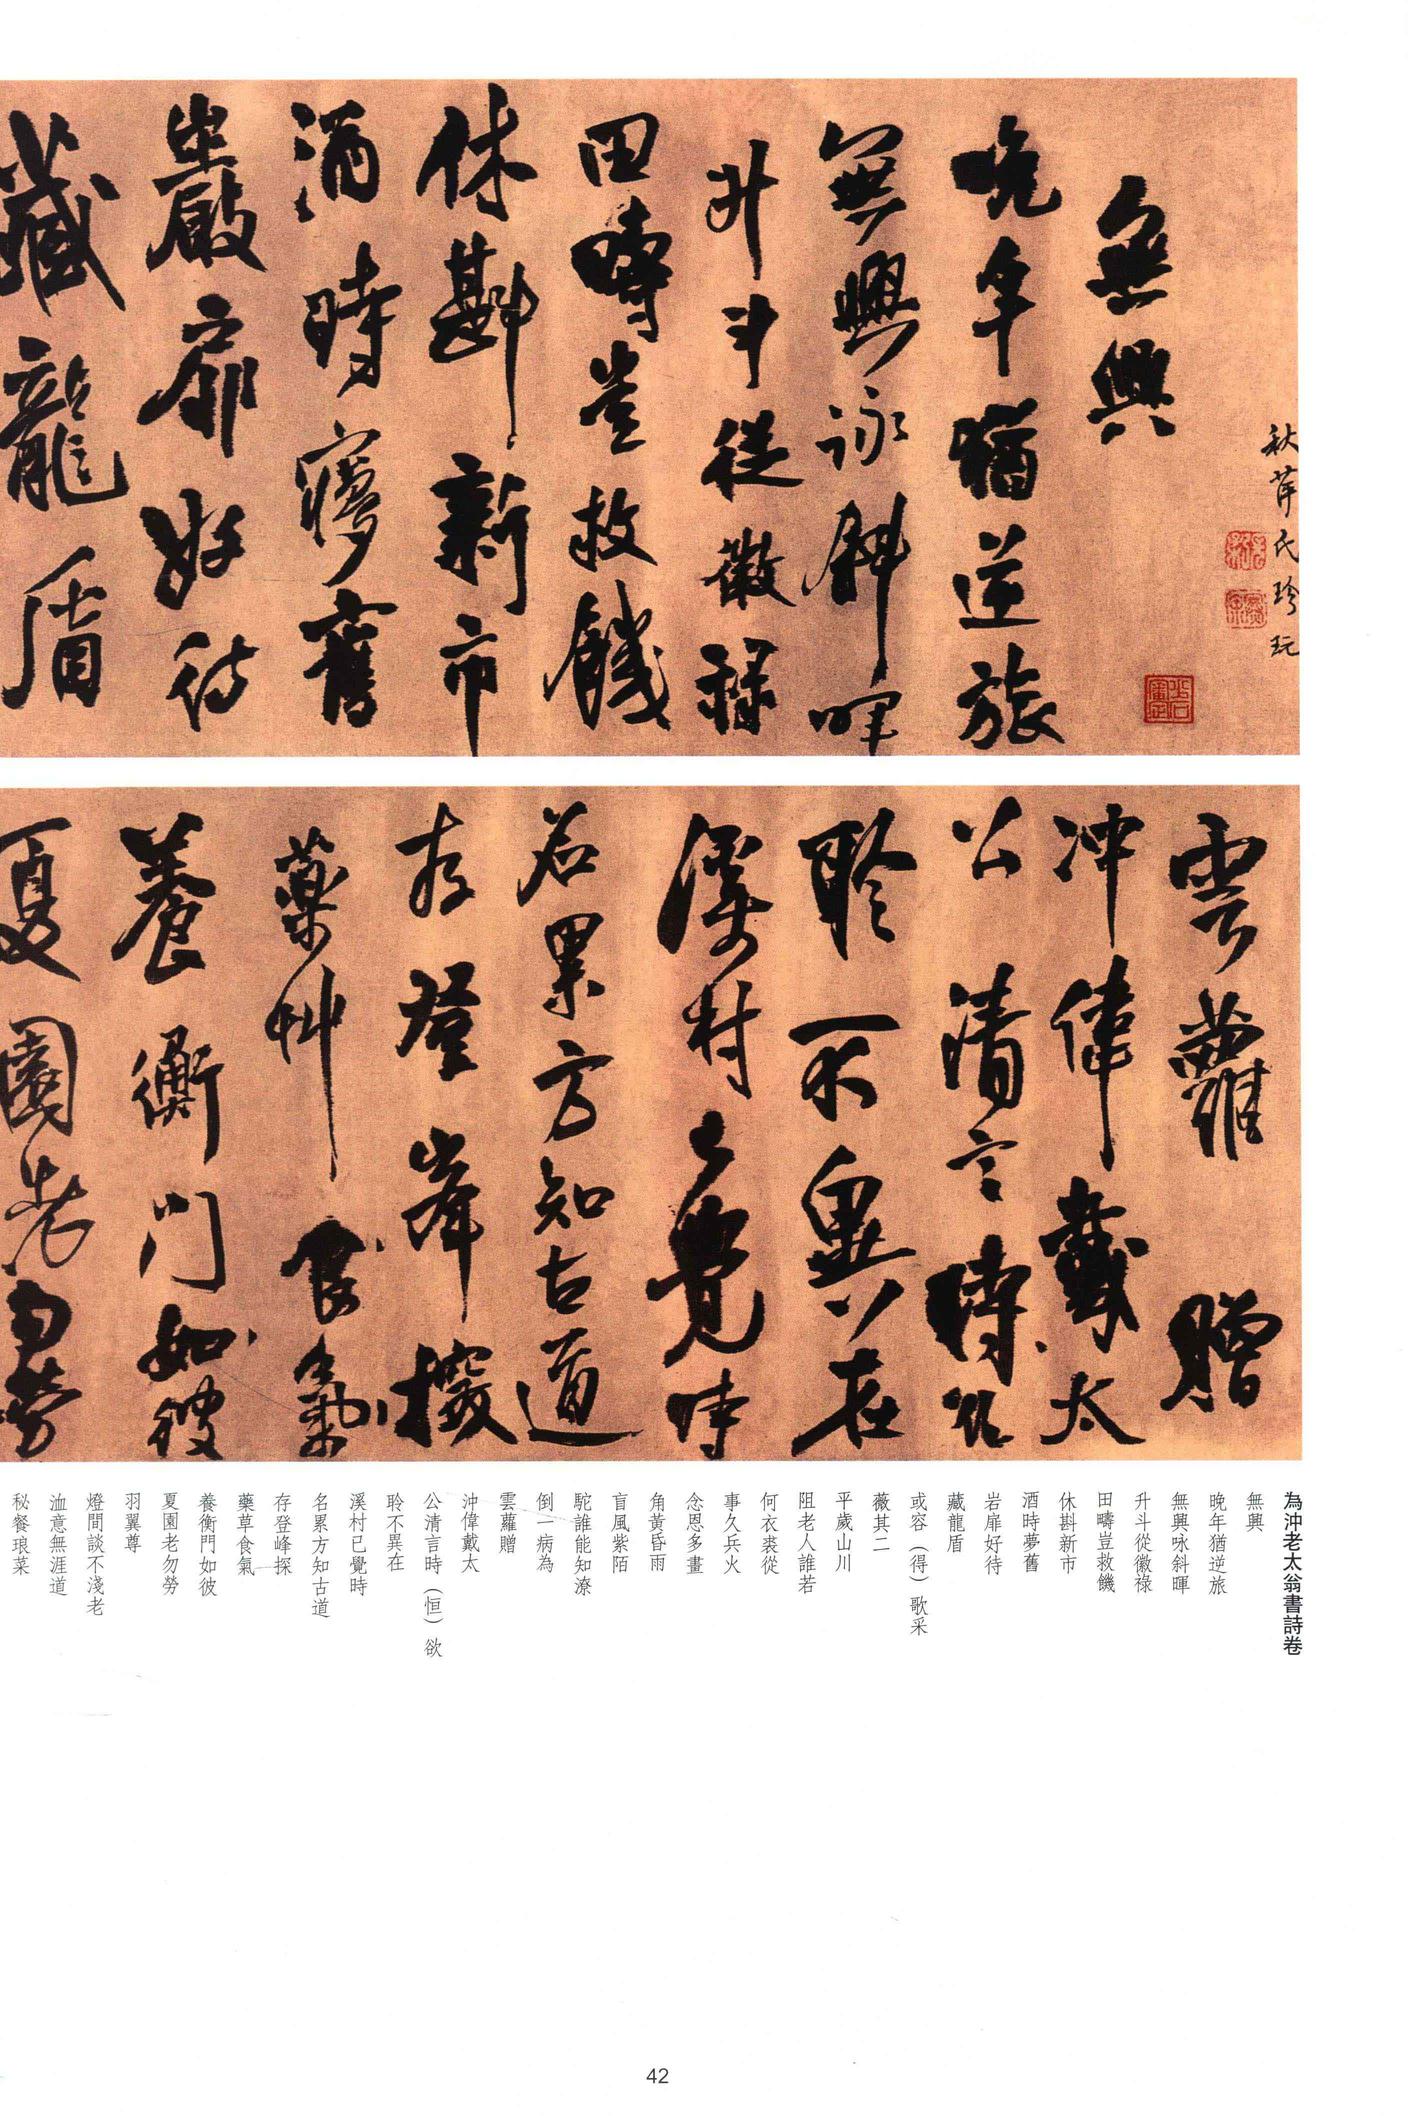 秋萍氏珍玩
無興
晚年猶逆旅
無興詠斜暉
升斗從微祿
田疇豈救饑
休斟新市
酒時夢舊
巖扉好待
藏龍盾
雲蘿贈
沖偉戴太
公清言時欲
聆不異在
溪村已覺時
名累方知古道
存登峰探
藥艸食氣
養衡門如彼
夏園老勿勞
為沖老太翁書詩卷
無興
晚年猶逆旅
無興咏斜暉
升斗從徽祿
田疇豈救饑
休斟新市
酒時夢舊
岩扉好待
藏龍盾
或容（得）歌采
薇其二
平歲山川
阻老人誰若
何衣裘從
事久兵火
念恩多畫
角黃昏雨
盲風紫陌
駝誰能知潦
倒一病為
雲蘿贈
沖偉戴太
公清言時（恒）欲
聆不異在
溪村已覺時
名累方知古道
存登峰探
藥草食氣
養衡門如彼
夏園老勿勞
羽翼尊
燈間談不淺老
洫意無涯道
秘餐琅菜
42